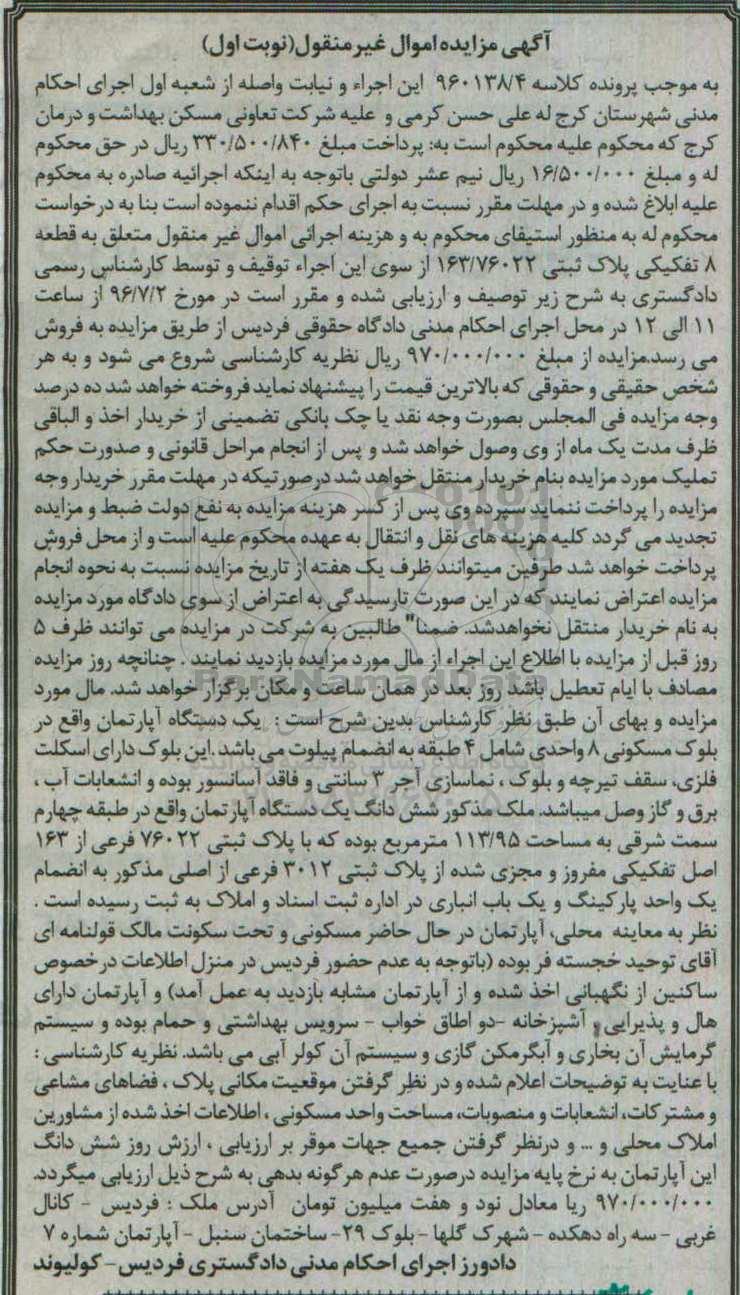 آگهی مزایده اموال غیر منقول(نوبت اول)
به موجب پرونده کلاسه ۹۶۰۱۳۸/۴ این اجراء و نیابت واصله از شعبه اول اجرای احکام
مدنی شهرستان کرج له علی حسن کرمی و علیه شرکت تعاونی مسکن بهداشت و درمان
کرج که محکوم علیه محکوم است به: پرداخت مبلغ ۳۳۰/۵۰۰/۸۴۰ ریال در حق محکوم
له و مبلغ ۱۶/۵۰۰/۰۰۰ ریال نیم عشر دولتی باتوجه به اینکه اجرائیه صادره به محکوم
علیه ابلاغ شده و در مهلت مقرر نسبت به اجرای حکم اقدام ننموده است بنا به درخواست
محکوم له به منظور استیفای محکوم به و هزینه اجرائی اموال غیر منقول متعلق به قطعه
۸ تفکیکی پلاک ثبتی ۱۶۳/۷۶۰۲۲ از سوی این اجراء توقیف و توسط کارشناس رسمی
دادگستری به شرح زیر توصیف و ارزیابی شده و مقرر است در مورخ ۹۶/۷/۲ از ساعت
۱۱ الی ۱۲ در محل اجرای احکام مدنی دادگاه حقوقی فردیس از طریق مزایده به فروش
می رسد.مزایده از مبلغ ۹۷۰/۰۰۰/۰۰۰ ریال نظریه کارشناسی شروع می شود و به هر
شخص حقیقی و حقوقی که بالاترین قیمت را پیشنهاد نماید فروخته خواهد شد ده درصد
وجه مزایده فی المجلس بصورت وجه نقد یا چک بانکی تضمینی از خریدار اخذ و الباقی
ظرف مدت یک ماه از وی وصول خواهد شد و پس از انجام مراحل قانونی و صدورت حکم
تملیک مورد مزایده بنام خریدار منتقل خواهد شد درصورتیکه در مهلت مقرر خریدار وجه
مزایده را پرداخت ننماید سپرده وی پس از کسر هزینه مزایده به نفع دولت ضبط و مزایده
تجدید می گردد کلیه هزینه های نقل و انتقال به عهده محکوم علیه است و از محل فروش
پرداخت خواهد شد طرفین میتوانند ظرف یک هفته از تاریخ مزایده نسبت به نحوه انجام
مزایده اعتراض نمایند که در این صورت تارسیدگی به اعتراض از سوی دادگاه مورد مزایده
به نام خریدار منتقل نخواهدشد. ضمنا" طالبین به شرکت در مزایده می توانند ظرف ۵
روز قبل از مزایده با اطلاع این اجراء از مال مورد مزایده بازدید نمایند . چنانچه روز مزایده
مصادف با ایام تعطیل باشد روز بعد در همان ساعت و مکان برگزار خواهد شد. مال مورد
مزایده و بهای آن طبق نظر کارشناس بدین شرح است : یک دستگاه آپارتمان واقع در
بلوک مسکونی ۸ واحدی شامل ۴ طبقه به انضمام پیلوت می باشد .این بلوک دارای اسکلت
فلزی، سقف تیرچه و بلوک ، نماسازی آجر ۳ سانتی و فاقد آسانسور بوده و انشعابات آب ،
برق و گاز وصل میباشد. ملک مذکور شش دانگ یک دستگاه آپارتمان واقع در طبقه چهارم
سمت شرقی به مساحت ۱۱۳/۹۵ مترمربع بوده که با پلاک ثبتی ۷۶۰۲۲ فرعی از ۱۶۳
اصل تفکیکی مفروز و مجزی شده از پلاک ثبتی ۳۰۱۲ فرعی از اصلی مذکور به انضمام
یک واحد پارکینگ و یک باب انباری در اداره ثبت اسناد و املاک به ثبت رسیده است .
نظر به معاینه محلی، آپارتمان در حال حاضر مسکونی و تحت سکونت مالک قولنامه ای
آقای توحید خجسته فر بوده (باتوجه به عدم حضور فردیس در منزل اطلاعات درخصوص
ساکنین از نگهبانی اخذ شده و از آپارتمان مشابه بازدید به عمل آمد) و آپارتمان دارای
هال و پذیرایی، آشپزخانه -دو اطاق خواب - سرویس بهداشتی و حمام بوده و سیستم
گرمایش آن بخاری و آبگرمکن گازی و سیستم آن کولر آبی می باشد. نظریه کارشناسی :
با عنایت به توضیحات اعلام شده و در نظر گرفتن موقعیت مکانی پلاک ، فضاهای مشاعی
و مشترکات، انشعابات و منصوبات، مساحت واحد مسکونی ، اطلاعات اخذ شده از مشاورین
املاک محلی و ... و درنظر گرفتن جمیع جهات موقر بر ارزیابی ، ارزش روز شش دانگ
این آپارتمان به نرخ پایه مزایده درصورت عدم هرگونه بدهی به شرح ذیل ارزیابی میگردد.
۹۷۰/۰۰۰/۰۰۰ ریا معادل نود و هفت میلیون تومان آدرس ملک : فردیس - کانال
غربی - سه راه دهکده - شهرک گلها - بلوک ۲۹- ساختمان سنبل - آپارتمان شماره ۷
دادورز اجرای احکام مدنی دادگستری فردیس- کولیوند
ParsNamadData